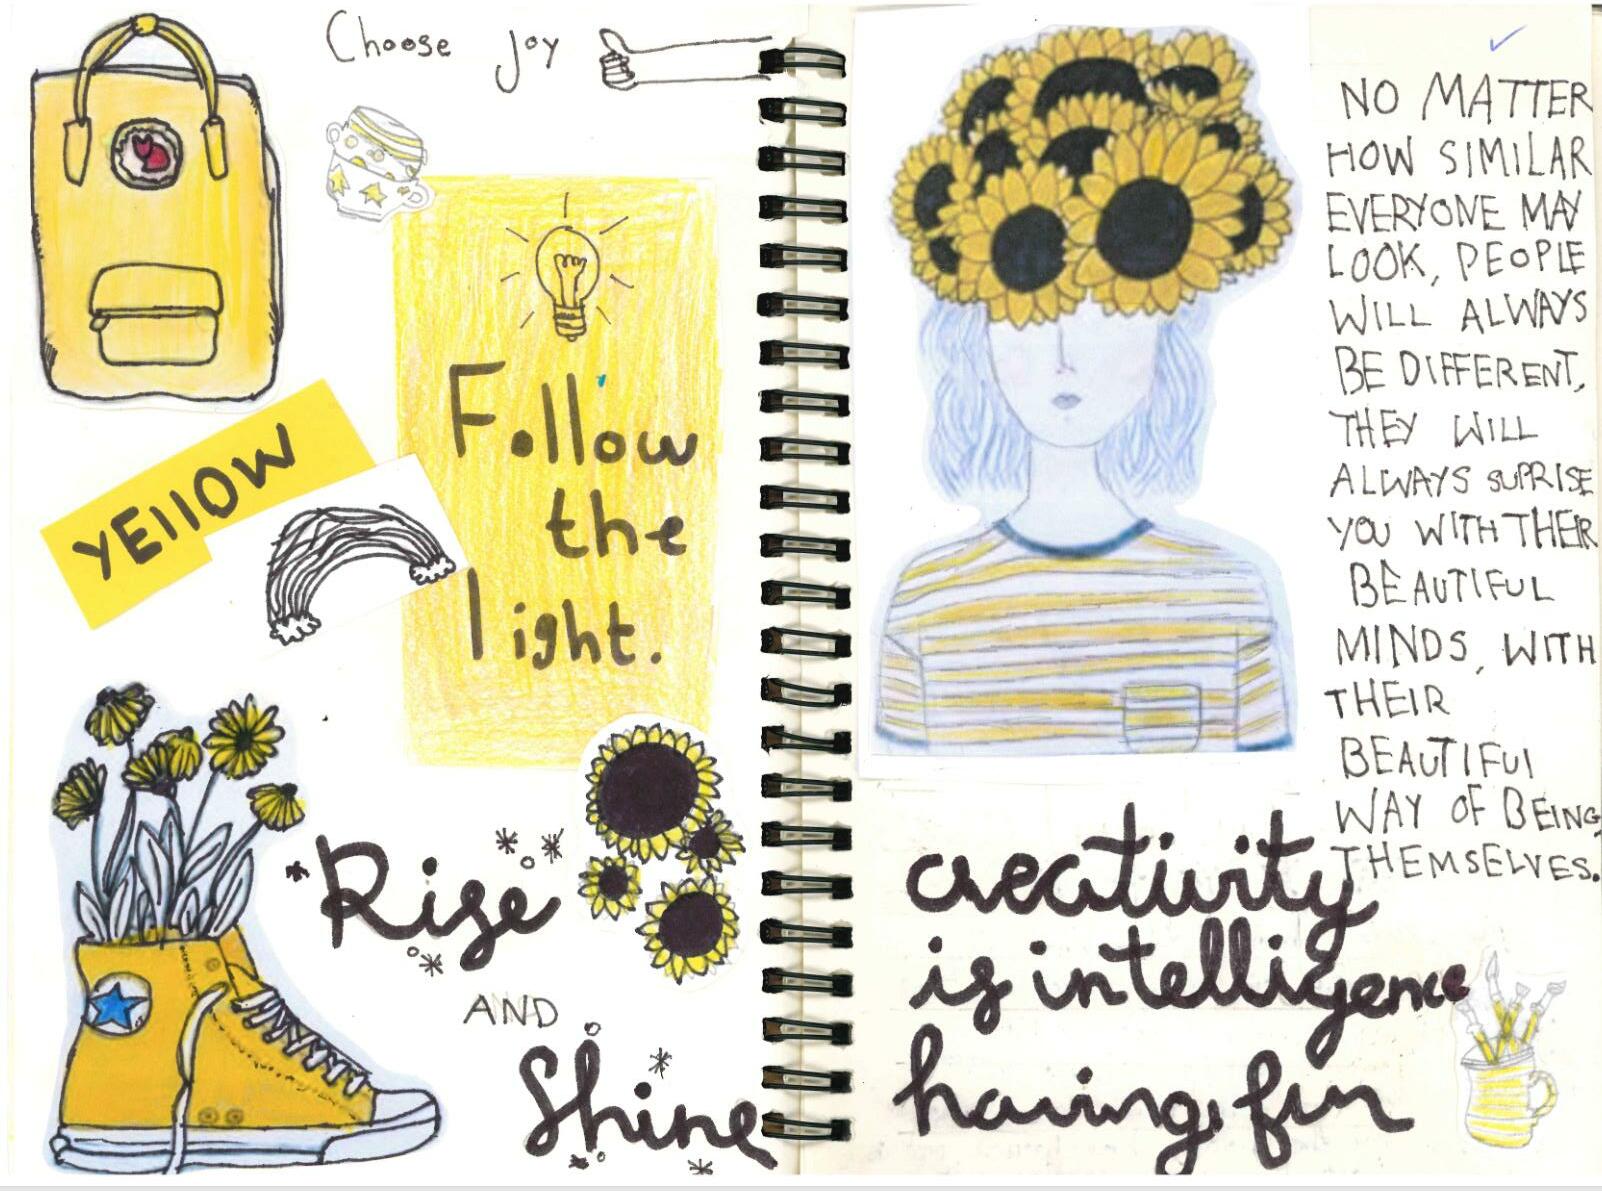 Choose Joy
YEllOW
Follow
the
light.
Rise
AND
Shine
NO MATTER
HOW SIMILAR
EVERYONE MAY
LOOK, PEOPLE
WILL ALWAYS
BE DIFFERENT,
THEY WILL
ALWAYS SUPRISE
YOU WITH THEIR
BEAUTIFUL
MINDS, WITH
THEIR
BEAUTIFUl
WAY OF BEING
THEMSELVES.
creativity
is intelligence
having fun